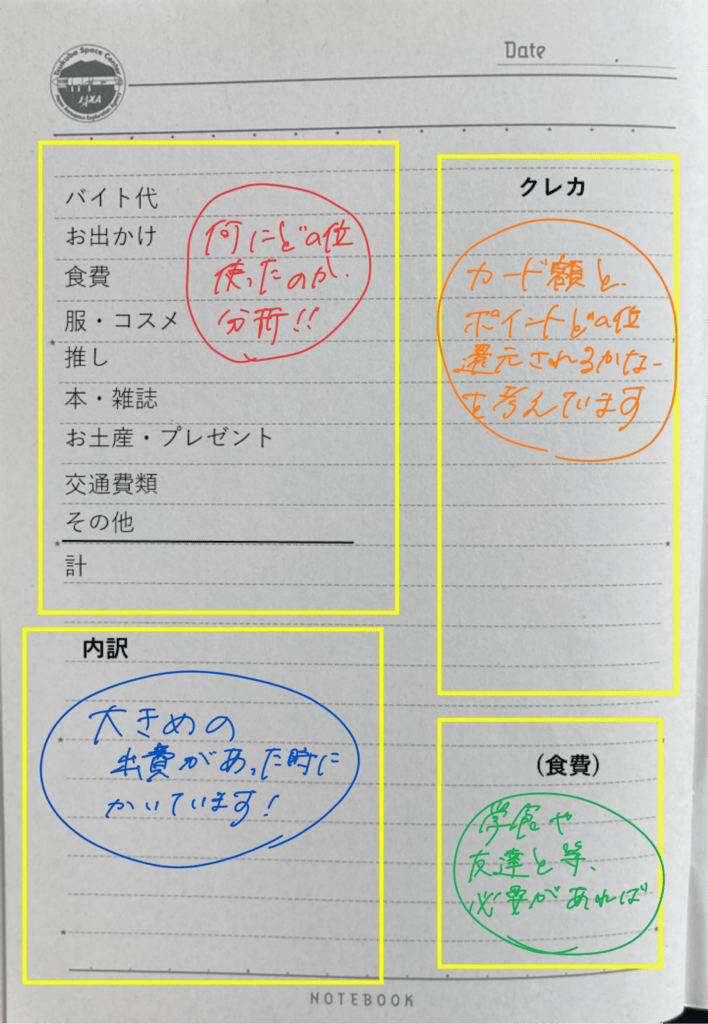 Date
Tsukuba Space Center
JAXA
Japan Aerospace Exploration Agency
バイト代
お出かけ
食費
服・コスメ
推し
本・雑誌
お土産・プレゼント
交通費類
その他
計
何にどの位
使ったのか、
分析!!
クレカ
カード額と、
ポイントどの位
還元されるかなー
を考えています
内訳
大きめの
出費があった時に
かいています!
(食費)
学食や
友達と等、
必要があれば
NOTEBOOK